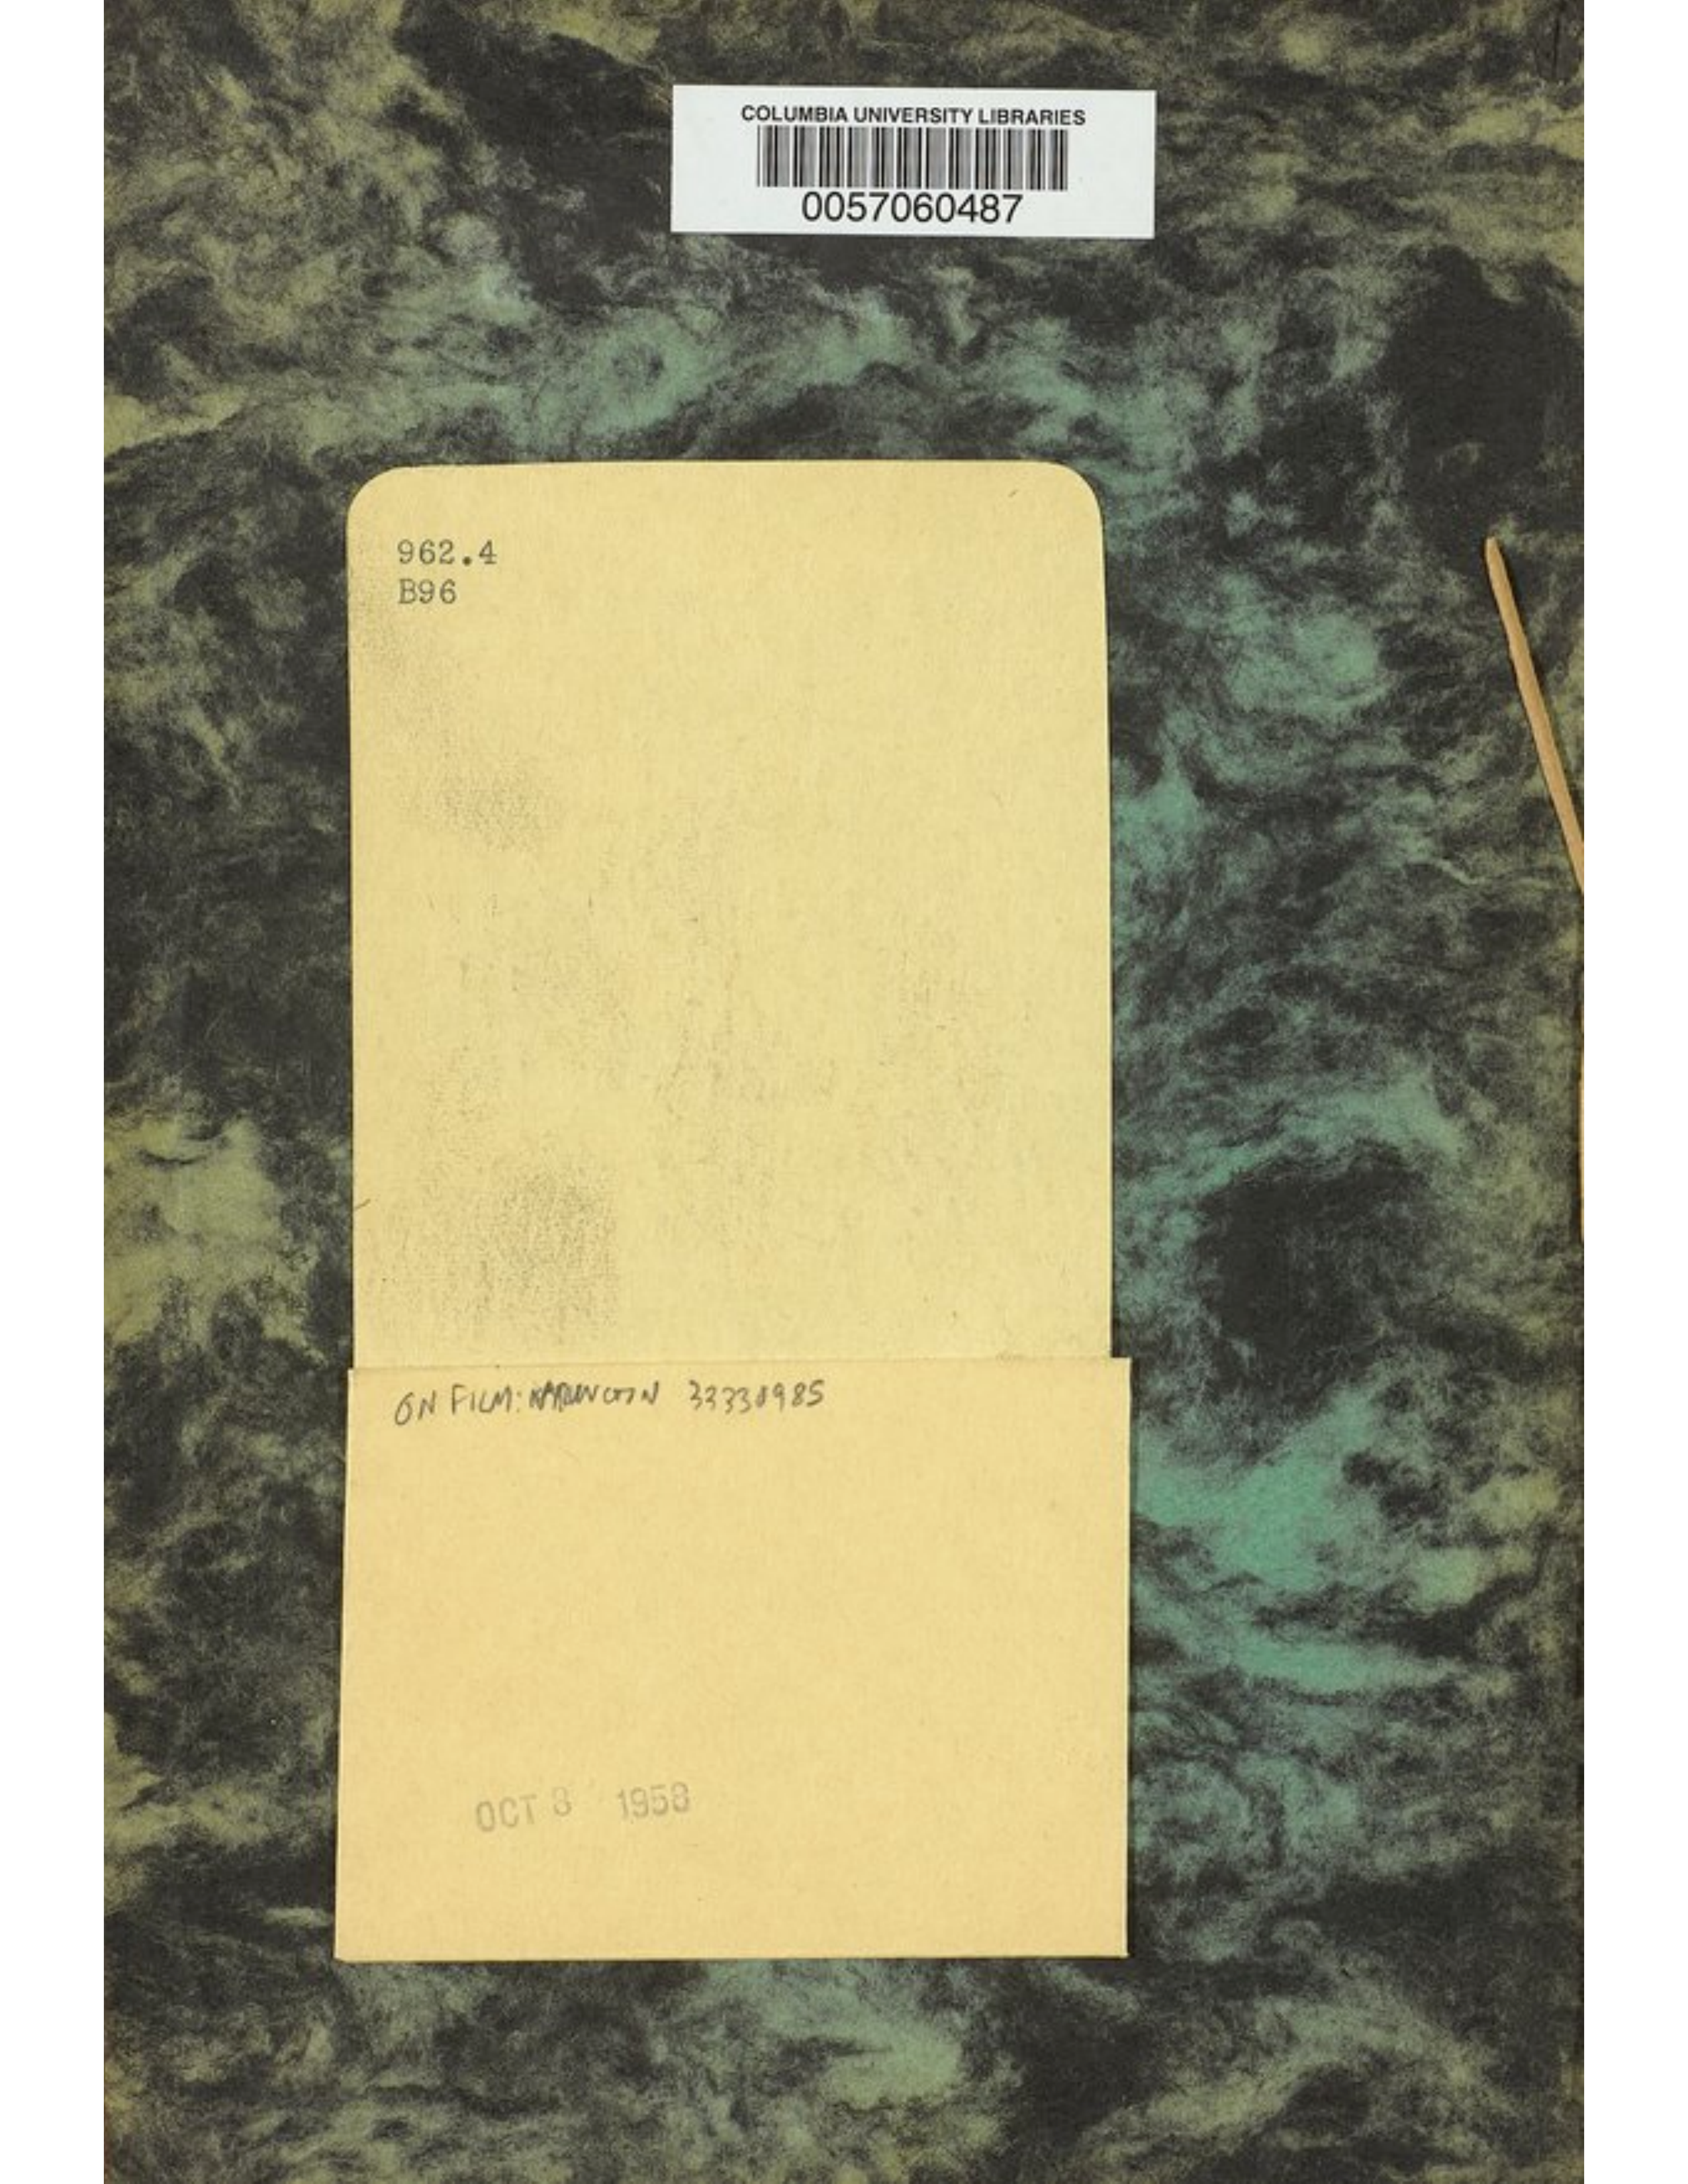 COLUMBIA UNIVERSITY LIBRARIES
0057060487
962.4
B96
ON FILM:
OCT 8 1958